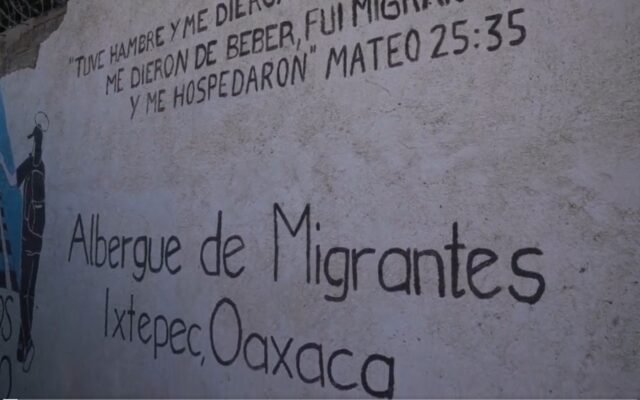 "TUVE HAMBRE Y ME DIERON
ME DIERON DE BEBER, FUI MIGRANTE
Y ME HOSPEDARON" MATEO 25:35
Albergue de Migrantes
Ixtepec, Oaxaca
OS